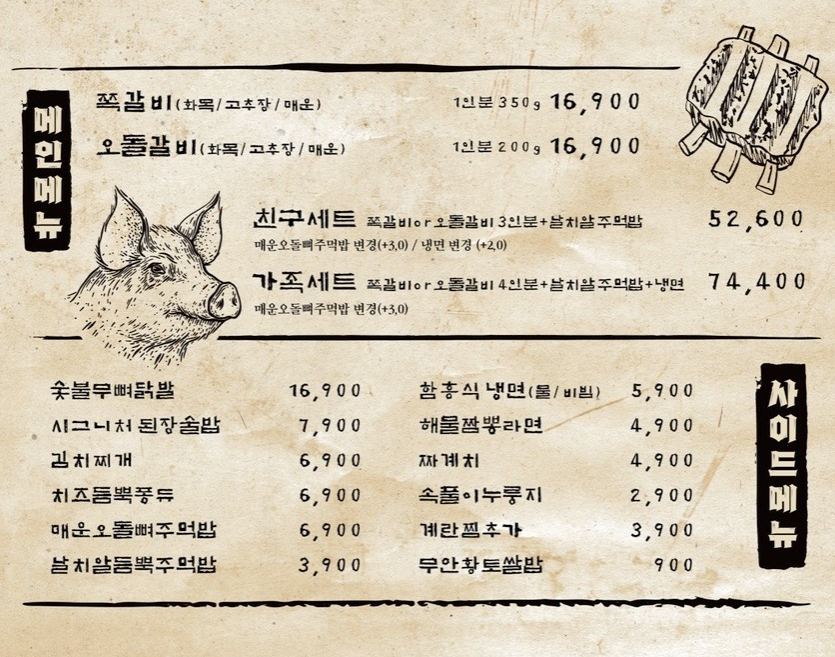 메인메뉴
쪽갈비(화목/고추장/매운) 1인분 350g 16,900
오돌갈비(화목/고추장/매운) 1인분 200g 16,900
친구세트 쪽갈비or오돌갈비 3인분+날치알주먹밥 52,600
매운오돌뼈주먹밥 변경(+3,0) / 냉면 변경 (+2,0)
가족세트 쪽갈비or오돌갈비 4인분+날치알주먹밥+냉면 74,400
매운오돌뼈주먹밥 변경(+3,0)
사이드메뉴
숯불무뼈닭발 16,900
시그니처 된장술밥 7,900
김치찌개 6,900
치즈듬뿍퐁듀 6,900
매운오돌뼈주먹밥 6,900
날치알듬뿍주먹밥 3,900
함흥식 냉면(물/비빔) 5,900
해물짬뽕라면 4,900
짜계치 4,900
속풀이누룽지 2,900
계란찜추가 3,900
무안황토쌀밥 900